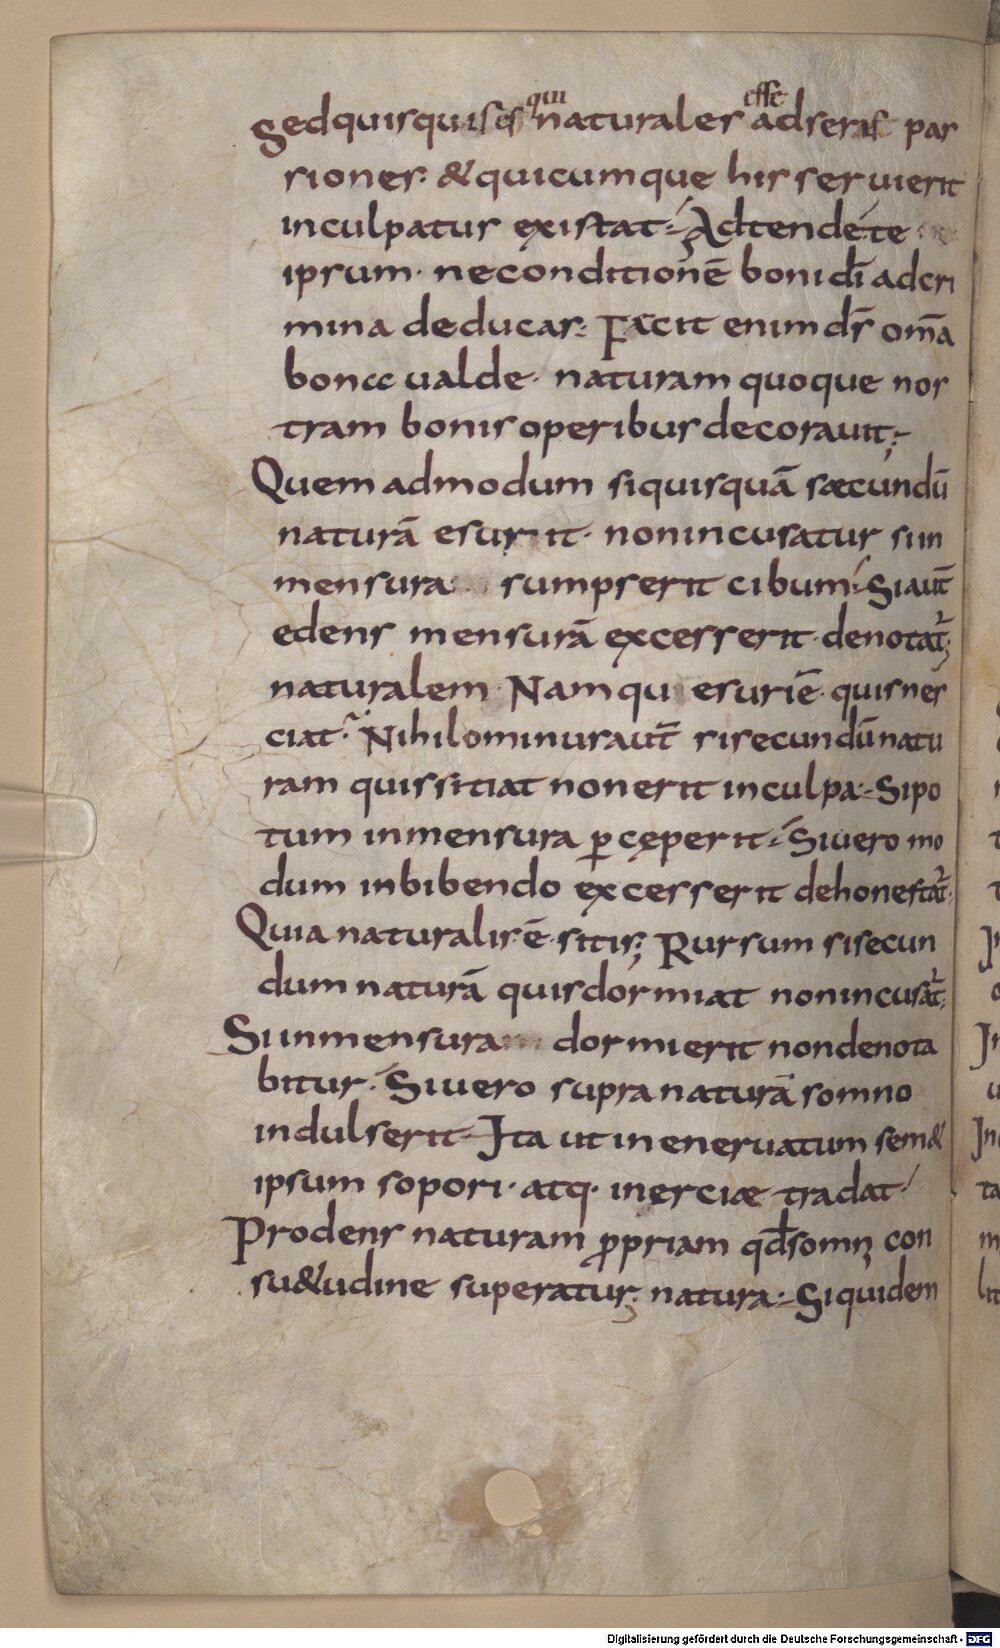 Sed quisquis es qui naturales esse adseris pas
siones. & quicumque his seruierit
inculpatus existat; Adtende te
ipsum. ne conditionē boni dī ad cri
mina deducas. Facit enim ds̄ om̄a
bona ualde. naturam quoque nos
tram bonis operibus decorauit;
Quem admodum si quisquā sæcundū
naturā esurit. non incusatur si in
mensura sumpserit cibum; Si aut̄
edens mensurā excesserit. denotat̄;
naturalem. Nam qu esuriē. quis nes
ciat. Nihilominus aut̄ si secundū natu
ram quis sitiat non erit in culpa. Si po
tum in mensura p̄ceperit; Si uero mo
dum in bibendo excesserit dehonestat̄.
Quia naturalis ē sitis; Rursum si secun
dum naturā quis dormiat non incusat̄;
Si in mensura dormierit non denota
bitur. Si uero supra naturā somno
indulserit. Ita ut in eneruatum sem&
ipsum sopori. atq. inerciæ tradat.
Prodens naturam ꝓpriam qđ somn; con
su&udine superatur; natura. Siquidem
Digitalisierung gefördert durch die Deutsche Forschungsgemeinschaft - DFG